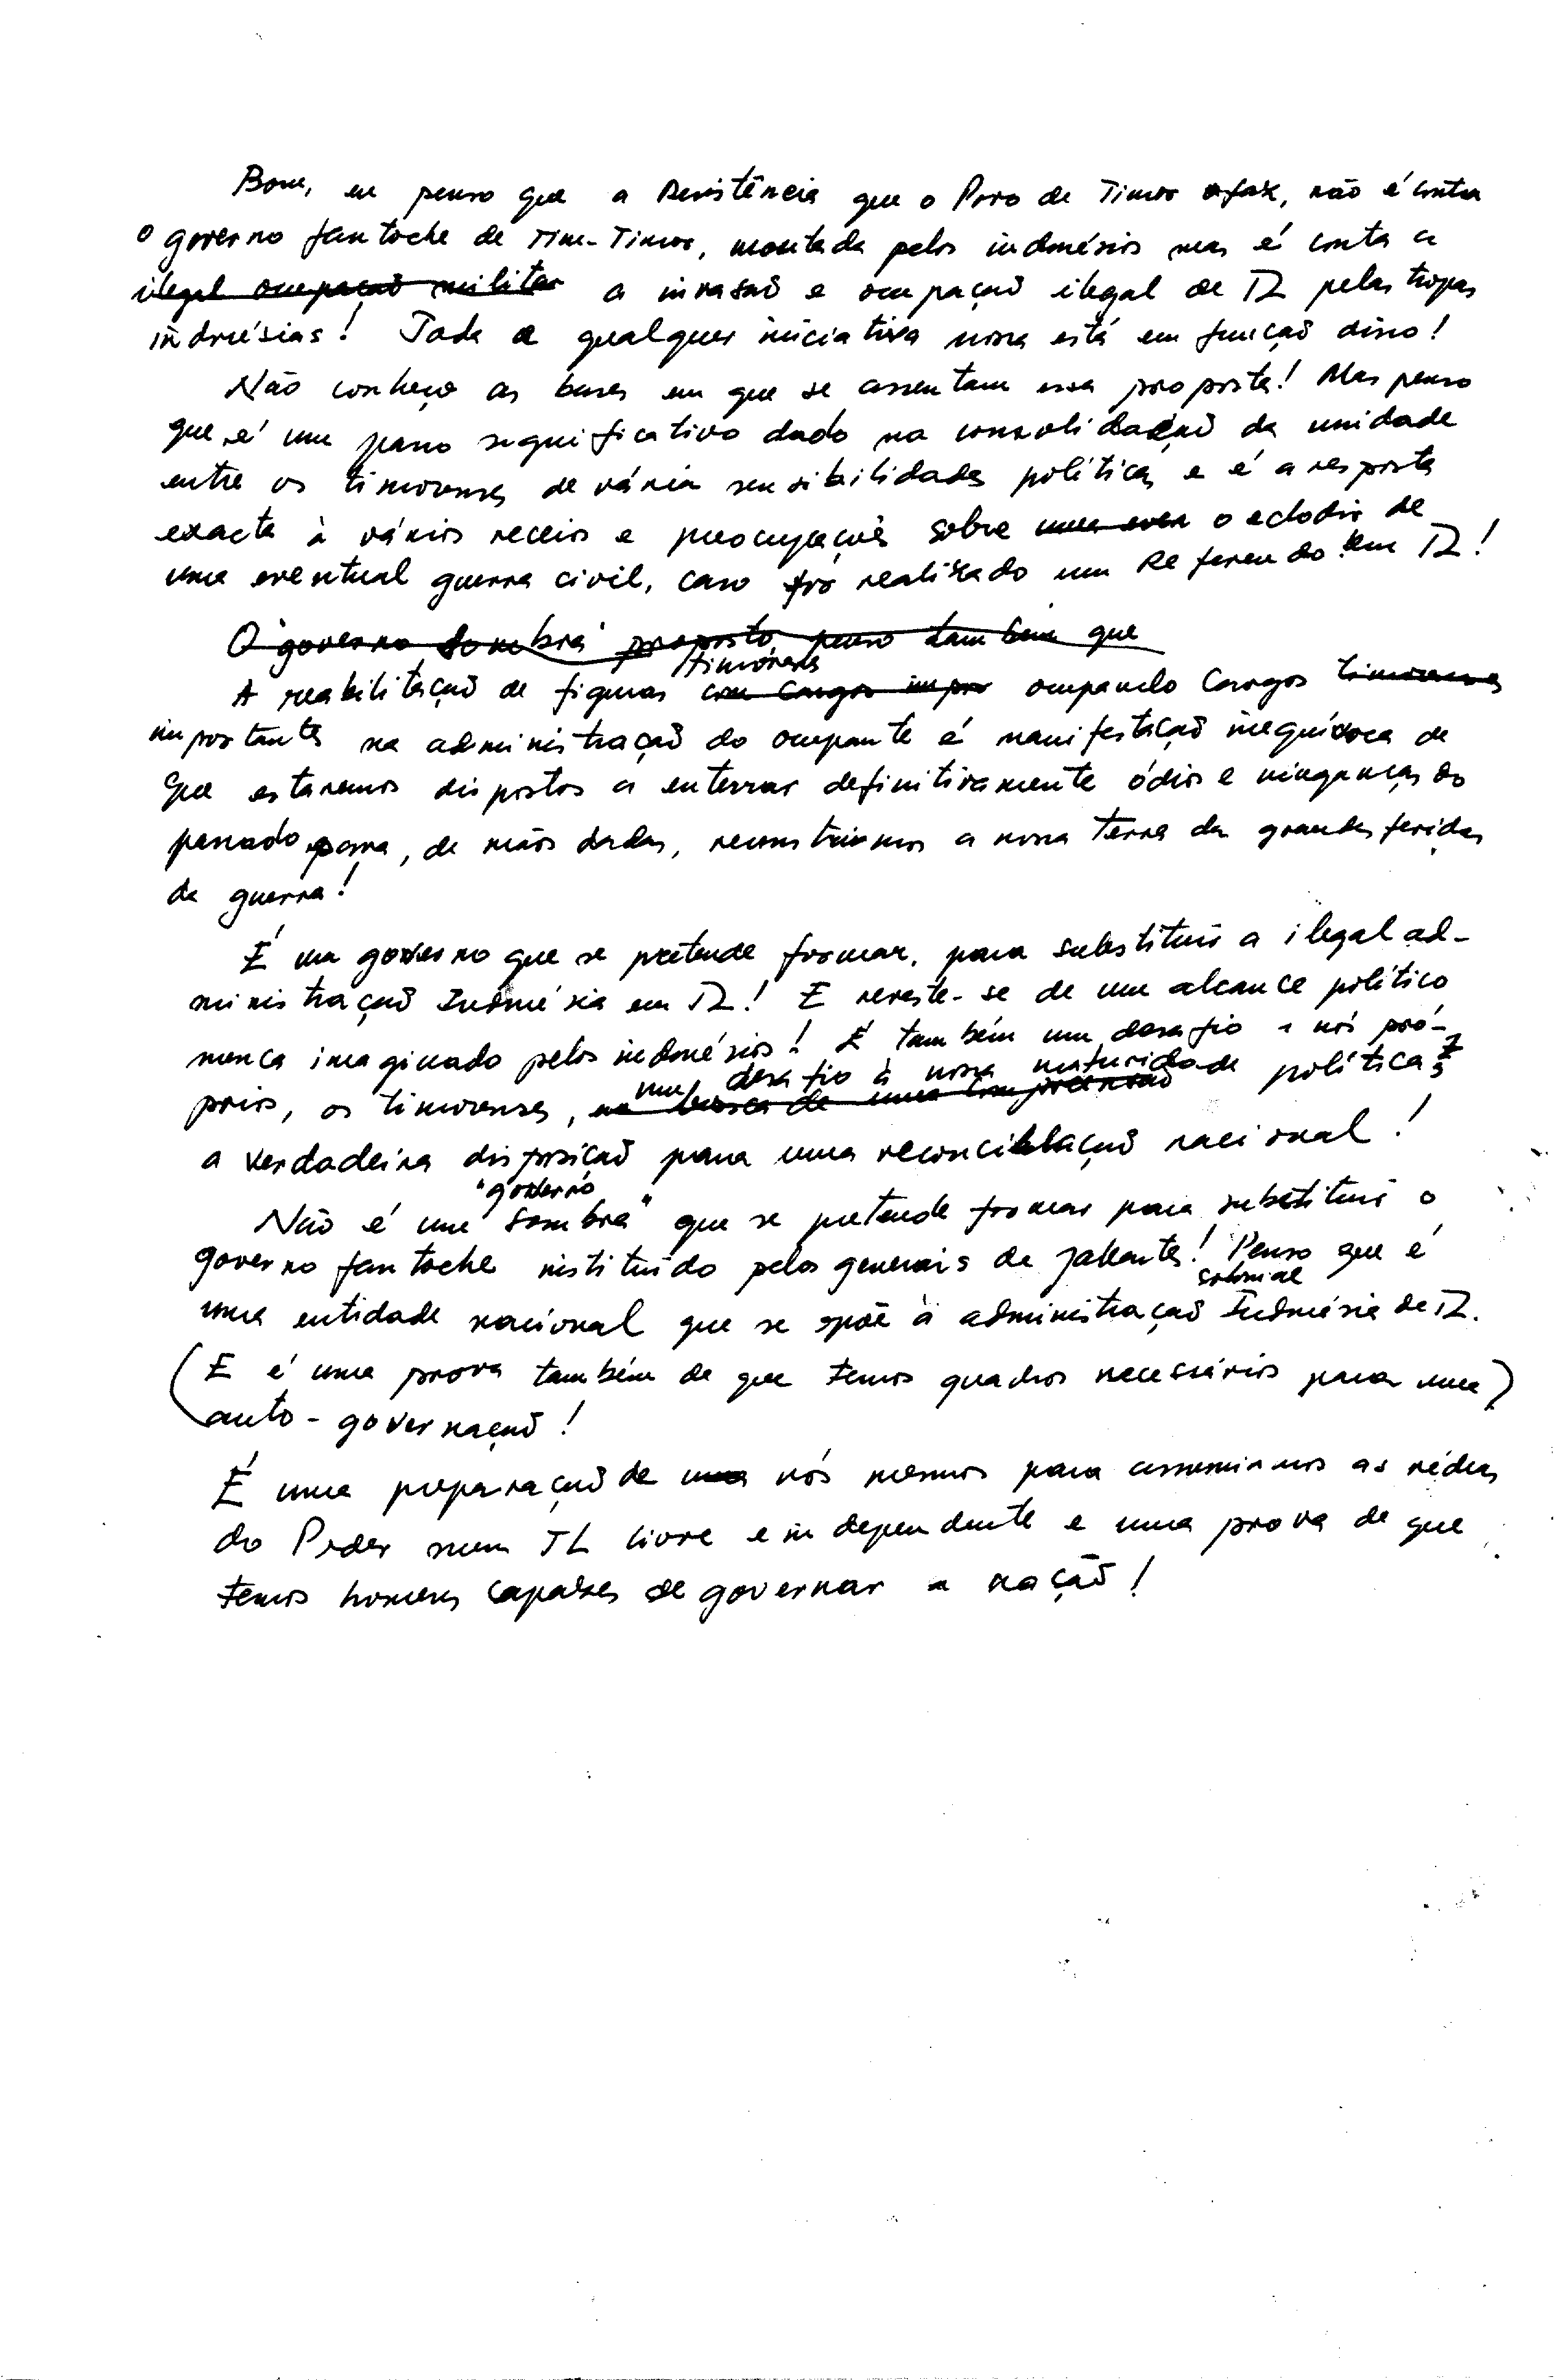 Bom, eu penso que a Resistência que o Povo de Timor faz, não é contra
o governo fantoche de Tim-Timor, montada pelos indonésios mas é conta a
ilegal ocupação militar a invasão e ocupação ilegal de TL pelas tropas
indonésias! Toda e qualquer iniciativa nossa está em função disso!
Não conheço as bases em que se assentam essa proposta! Mas penso
que é um passo significativo dado na consolidação da unidade
entre os timorenses de vária sensibilidades políticas e é a resposta
exacta à vários receios e preocupações sobre o eclodir de
uma eventual guerra civil, caso for realizado um Referendo em TL!
O "governo sombra" proposto, penso também que
timorenses
A reabilitação de figuras com cargos impor ocupando cargos timorenses
importantes na administração do ocupante é manifestação inequívoca de
que estaremos dispostos a enterrar definitivamente ódios e vinganças do
passado para, de mãos dadas, reconstruirmos a nossa Terra das grandes feridas
da guerra!
É um governo que se pretende formar, para substituir a ilegal ad-
ministração Indonésia em TL! E reveste-se de um alcance político
nunca imaginado pelos indonésios! É também um desafio a nós pró-
um desafio à nossa maturidade
prios, os timorenses, na busca de uma compreensão política E
a verdadeira disposição para uma reconciliação nacional!
"governo
Não é um sombra" que se pretende formar para substituir o
governo fantoche instituído pelos generais de Jakarta! Penso que é
colonial
uma entidade nacional que se opõe à administração Indonésia de TL.
(E é uma prova também de que temos quadros necessários para uma)
auto-governação!
É uma preparação de uma nós mesmos para assumirmos as rédeas
do Poder num TL livre e independente e uma prova de que
temos homens capazes de governar a nação!